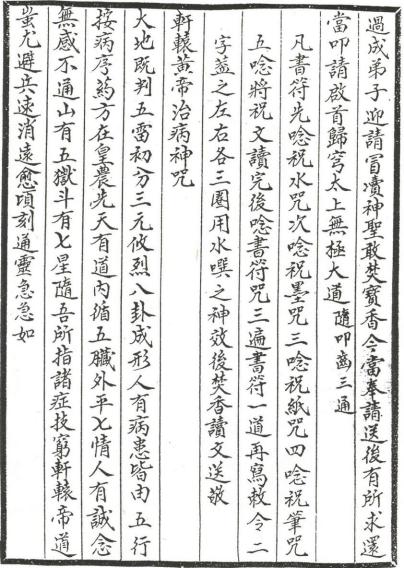 過成弟子迎請冒瀆神聖敢焚寶香今當奉請送後有所求還
當叩請啟首歸穹太上無極大道隨叩齒三通
凡書符先唸祝水咒次唸祝墨咒三唸祝紙咒四唸祝筆咒
五唸將祝文讀完後唸書符咒三遍書符一道再寫敕令二
字蓋之左右各三圈用水噀之神效後焚香讀文送敬
軒轅黃帝治病神咒
大地既判五雷初分三元攸烈八卦成形人有病患皆由五行
按病序葯方在皇農先天有道內循五臟外平七情人有誠念
無感不通山有五獄斗有七星隨吾所指諸症技窮軒轅帝道
蚩尤避兵速消遠愈頃刻通靈急急如